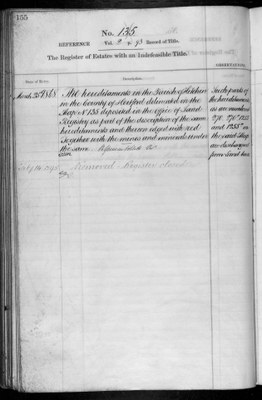 155
No. 155
REFERENCE Vol. 2 p. 93 Record of Title.
The Register of Estates with an Indefeasible Title.
Date of Entry. Description. OBSERVATIONS.
March 25 1868 All hereditaments in the Parish of Hitchin
in the County of Hertford delineated in the
Map No. 155 deposited in the office of Land
Registry as part of the description of the same
hereditaments and thereon edged with red
Together with the mines and minerals under
the same
Such parts of
the hereditaments
as are numbered
and 1255 on
the said Map
are discharged
from Land tax
Removed Register